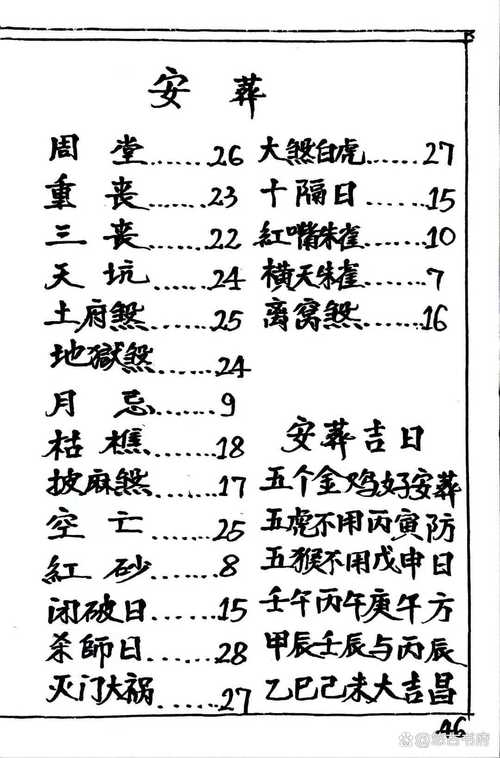 安葬
周堂......26
重丧......23
三丧......22
天坑......24
土府煞......25
地獄煞......24
月忌......9
枯樵......18
披麻煞......17
空亡......25
紅砂......8
闭破日......15
杀師日......28
灭门大祸......27
大煞白虎......27
十隔日......15
紅嘴朱雀......10
横天朱雀......7
离窝煞......16
安葬吉日
五个金鸡好安葬
五虎不用丙寅防
五猴不用戊申日
壬午丙午庚午方
甲辰壬辰与丙辰
乙巳己未大吉昌
46